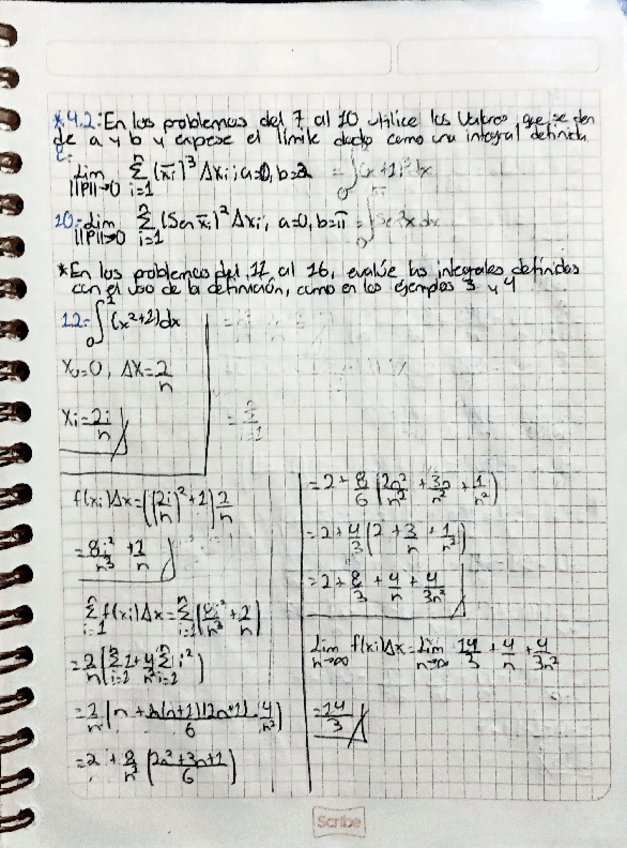 *4.2: En los problemas del 7 al 10 utilice los Valores que se den
de a y b y exprese el límite dado como una integral definida.
Lim ||P||→0 Σ i=1 n (x̄i)³ Δxi; a=0, b=2 = ∫ (x+1)³dx
10.- Lim ||P||→0 Σ i=1 n (Sen x̄i)² Δxi, a=0, b=π = ∫ 0 π Sen²x dx
*En los problemas del 11 al 16, evalúe las integrales definidas
con el uso de la definición, como en los ejemplos 3 y 4
12.- ∫ 0 2 (x²+1)dx
X₀=0, Δx=2/n
Xi=2i/n
f(xi)Δx=((2i/n)²+1)2/n
=8i²/n³ + 2/n
Σ i=1 n f(xi)Δx=Σ i=1 n (8i²/n³+2/n)
=2/n (Σ i=1 n 1+4/n² Σ i=1 n i²)
=2/n (n + n(n+1)(2n+1)/6 · 4/n²)
=2 + 8/n³ (2n²+3n+1/6)
=2+8/6 (2n²/n² + 3n/n² + 1/n²)
=2+4/3 (2+3/n+1/n²)
=2+8/3+4/n+4/3n²
Lim n→∞ f(xi)Δx=Lim n→∞ 14/3+4/n+4/3n²
=14/3
Scribe